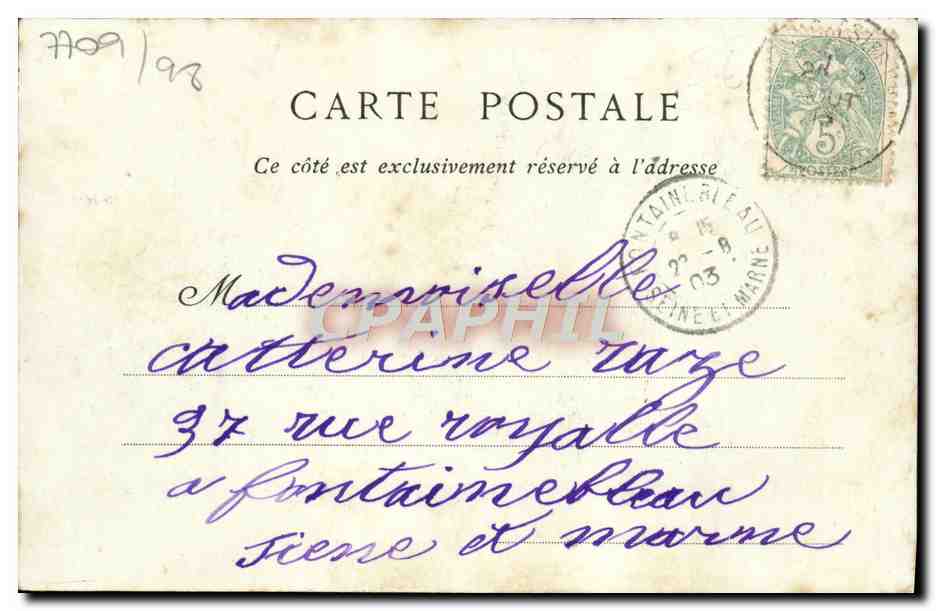 7709/98
CARTE POSTALE
Ce côté est exclusivement réservé à l'adresse
5
FONTAINEBLEAU
8 15
22 - 8
03
SEINE ET MARNE
CPAPHIL
Mademoiselle
catterine raze
37 rue royalle
a fontainebleau
Siene et marne